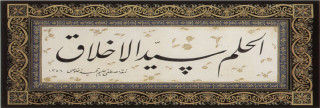 الحلم سيد الاخلاق